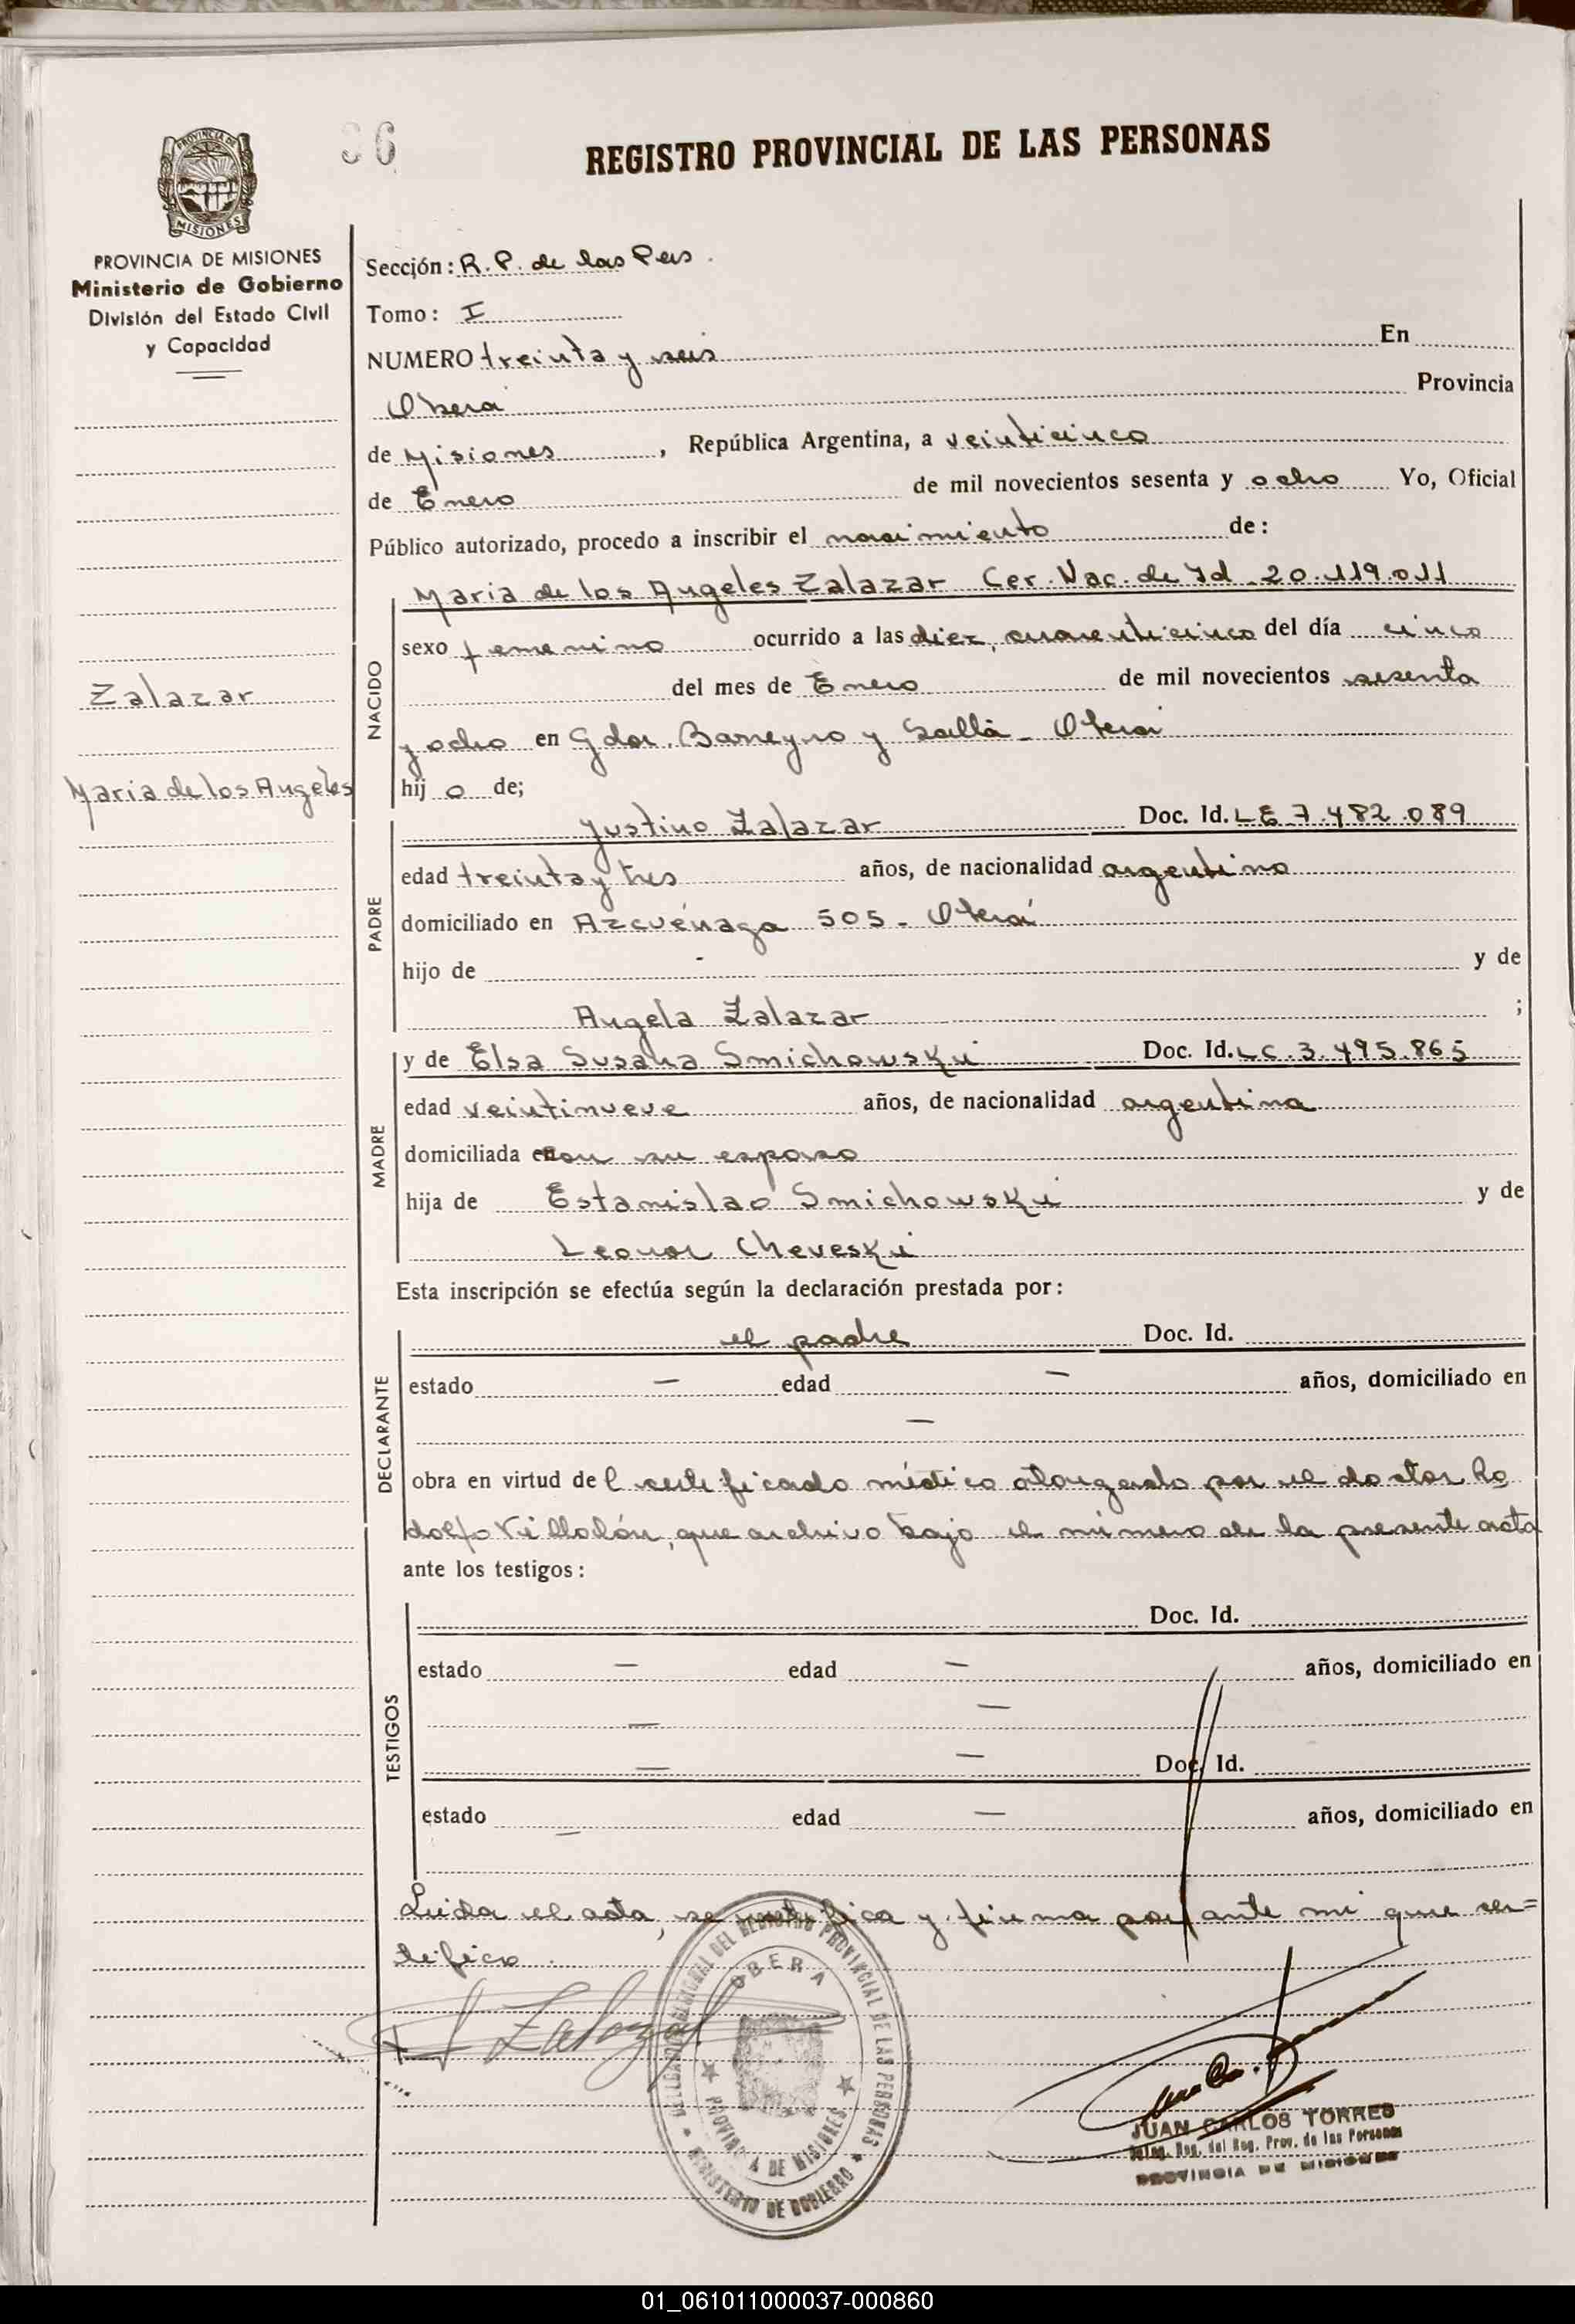 36
REGISTRO PROVINCIAL DE LAS PERSONAS
PROVINCIA DE
MISIONES
PROVINCIA DE MISIONES
Ministerio de Gobierno
División del Estado Civil
y Capacidad
Zalazar
Maria de los Angeles
Sección: R. P. de las Pers.
Tomo: I
NUMERO treinta y seis En
Oberá Provincia
de Misiones, República Argentina, a veinticinco
de Enero de mil novecientos sesenta y ocho Yo, Oficial
Público autorizado, procedo a inscribir el nacimiento de:
Maria de los Angeles Zalazar Cer. Nac. de Id. 20.119.011
NACIDO
sexo femenino ocurrido a las diez, cuarenticinco del día cinco
del mes de Enero de mil novecientos sesenta
y ocho en Gdor. Barreyro y Sallá - Oberá
hij o de;
PADRE
Justino Zalazar Doc. Id. LE 7.482.089
edad treinta y tres años, de nacionalidad argentino
domiciliado en Azcuénaga 505 - Oberá
hijo de - y de
Angela Zalazar ;
MADRE
y de Elsa Susana Smichowski Doc. Id. LC. 3.495.865
edad veintinueve años, de nacionalidad argentina
domiciliada con su esposo
hija de Estanislao Smichowski y de
Leonor Cheveski
Esta inscripción se efectúa según la declaración prestada por:
DECLARANTE
el padre Doc. Id.
estado — edad — años, domiciliado en
—
obra en virtud del certificado médico otorgado por el doctor Ro
dolfo Villalón, que archivo bajo el número de la presente acta
ante los testigos:
TESTIGOS
Doc. Id.
estado — edad — años, domiciliado en
— —
— — Doc. Id.
estado — edad — años, domiciliado en
Leida el acta, se ratifica y firma por ante mi que cer=
tifico.
J Zalazar
DELEGACION REGIONAL DEL REGISTRO PROVINCIAL DE LAS PERSONAS
OBERA
PROVINCIA DE MISIONES
MINISTERIO DE GOBIERNO
JUAN CARLOS TORRES
Reg. del Reg. Prov. de las Personas
PROVINCIA DE MISIONES
01_061011000037-000860